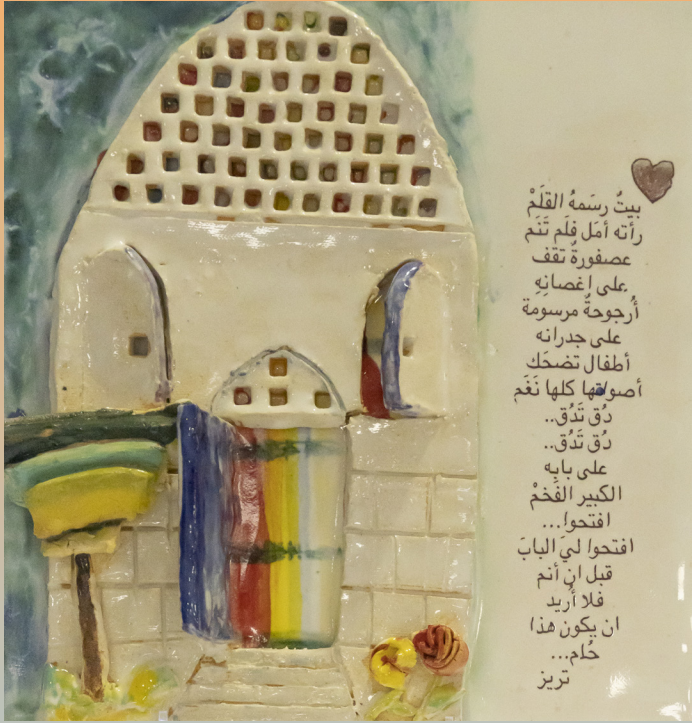 بيتٌ رسَمهُ القلَمْ
رأته أمَل فلَم تَنَم
عصفورةٌ تقف
على اغصانِهِ
أرجوحةٌ مرسومة
على جدرانه
أطفال تضحَك
أصواتها كلها نَغَم
دُق تَدُق..
دُق تَدُق..
على بابِه
الكبير الفَخمْ
افتحوا...
افتحوا ليَ البابَ
قبل ان أنم
فلا أريد
ان يكون هذا
حُلم...
تريز